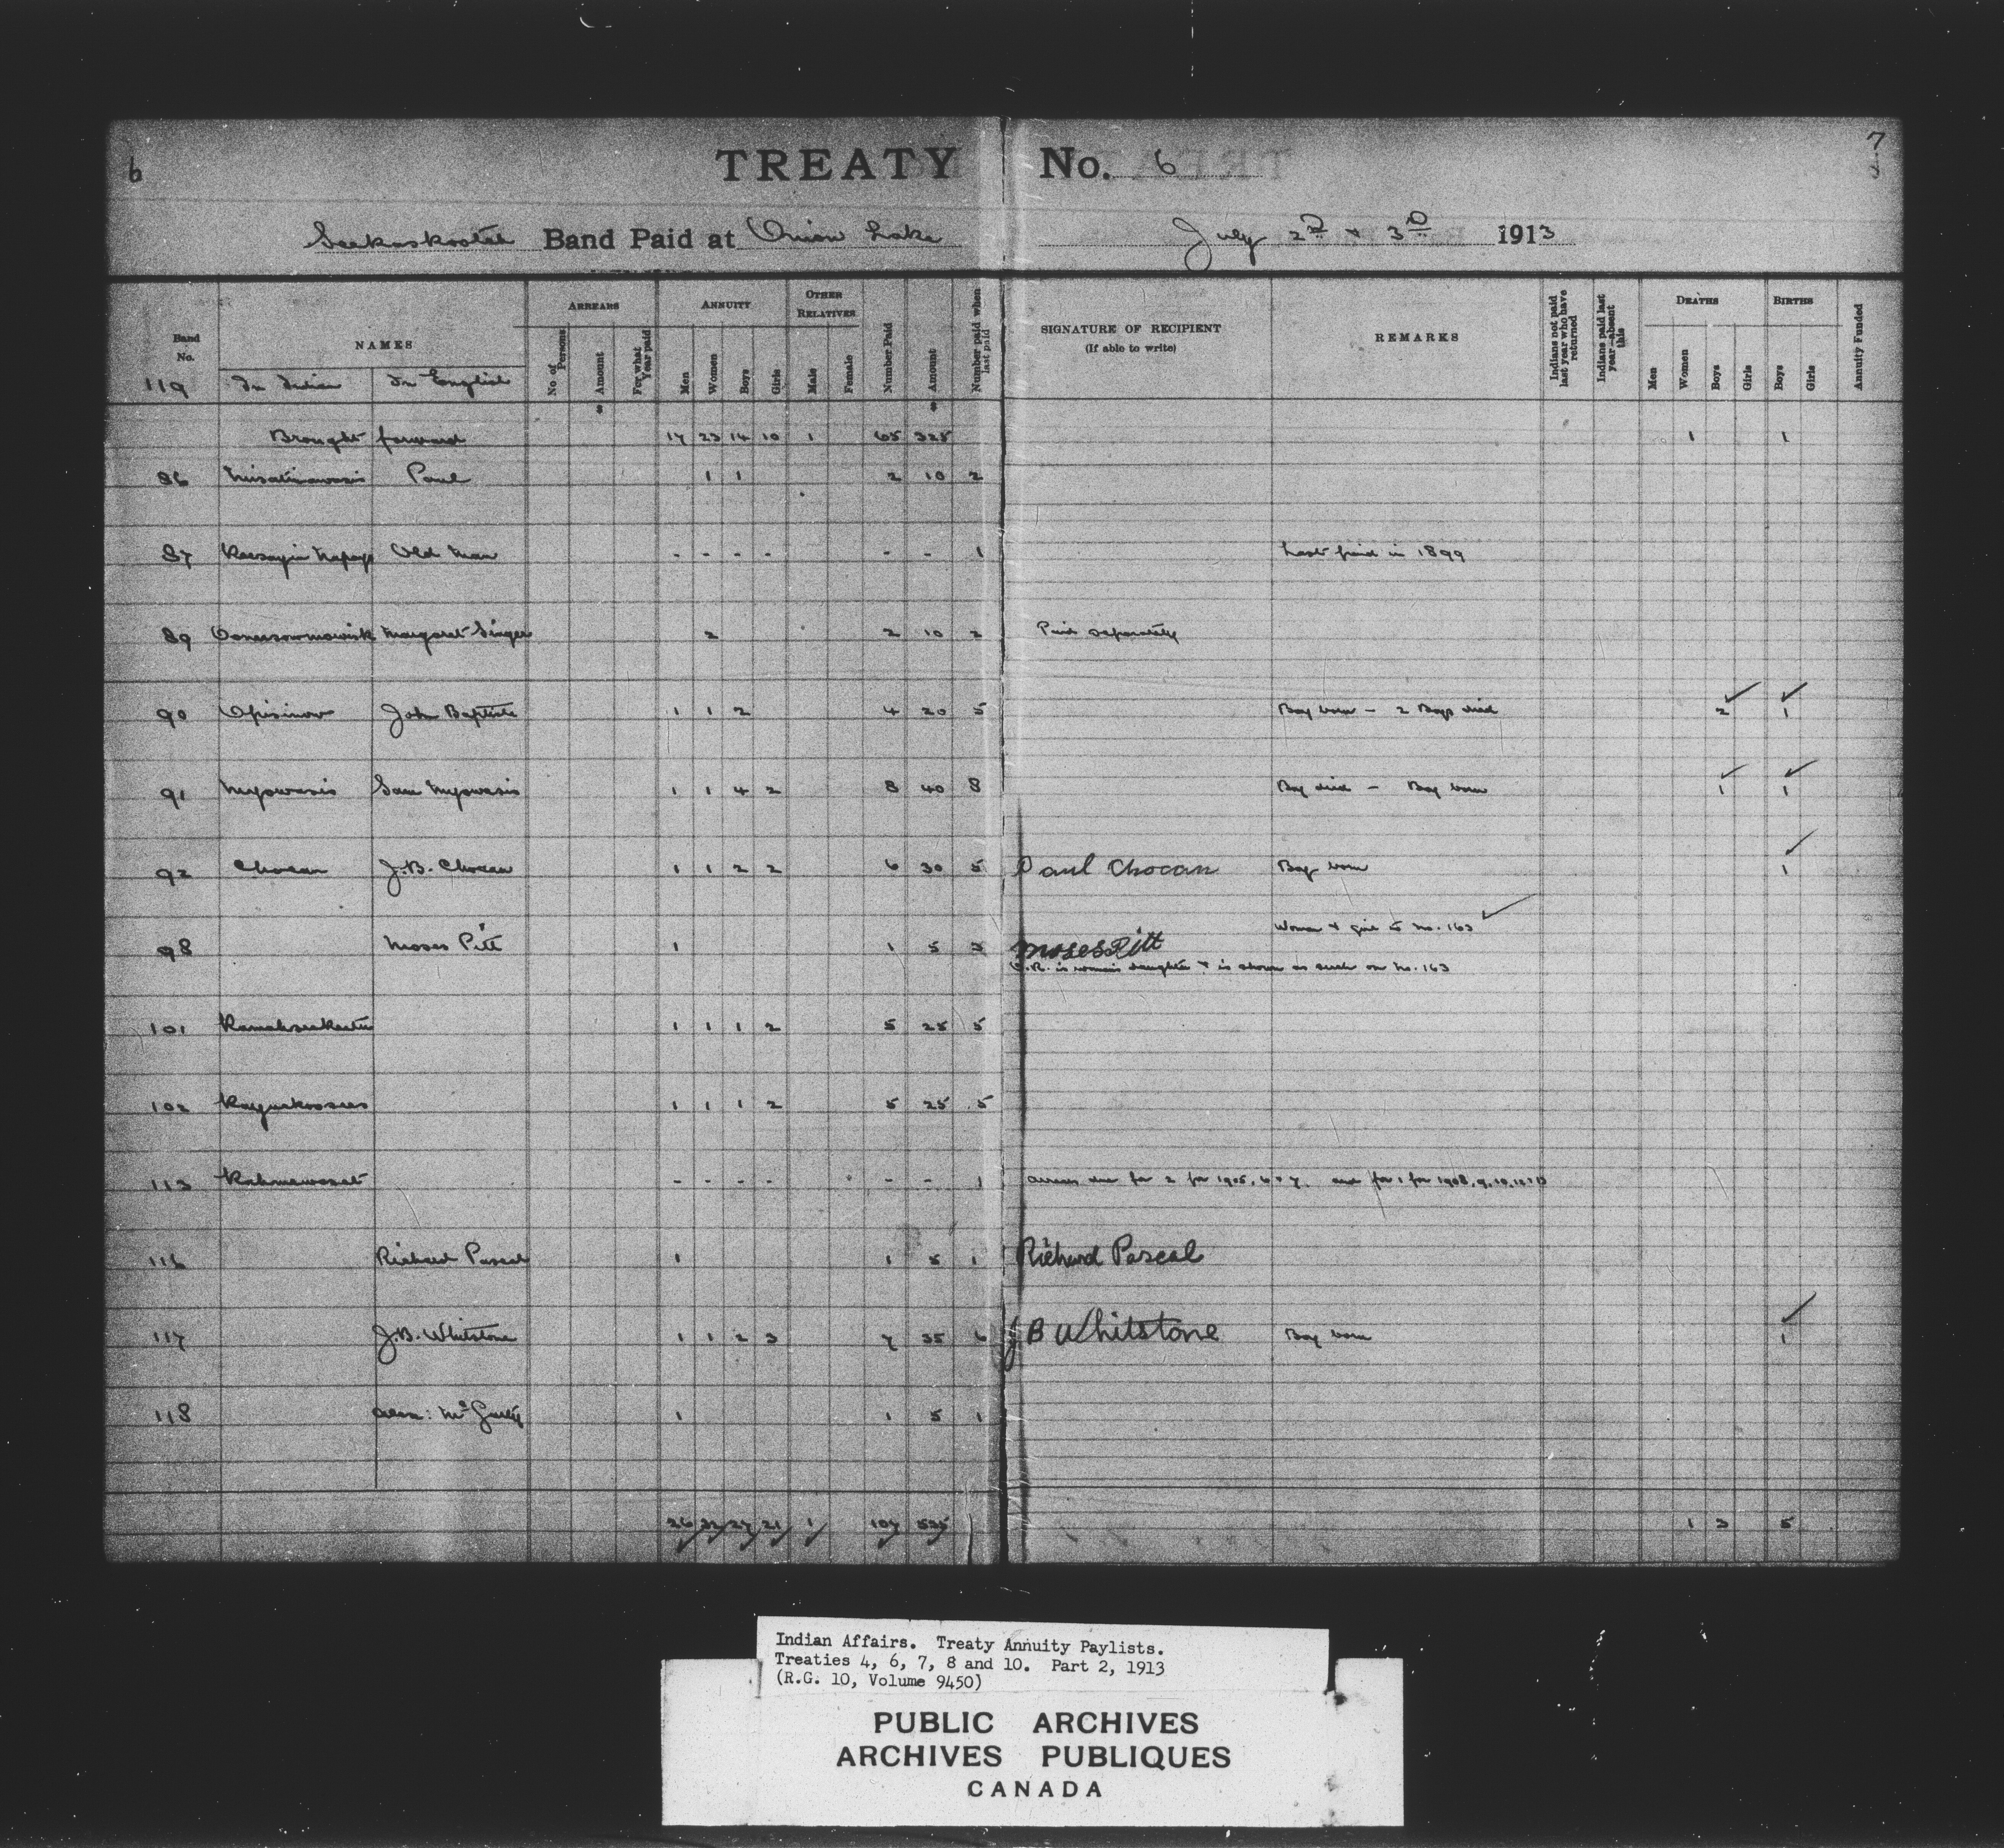 6
7
TREATY No. 6
Seekaskootch Band Paid at Onion Lake July 2nd & 3rd 1913
Band No.
NAMES
ARREARS
ANNUITY
OTHER RELATIVES
No. of Persons
Amount
For what Year paid
Men
Women
Boys
Girls
Male
Female
Number Paid
Amount
Number paid when last paid
SIGNATURE OF RECIPIENT
(If able to write)
REMARKS
Indians not paid last year who have returned
Indians paid last year—absent this
DEATHS
Men
Women
Boys
Girls
BIRTHS
Boys
Girls
Annuity Funded
119 In Indian In English
$ $
Brought forward 17 23 14 10 1 65 325 1 1
86 Paul 1 1 2 10 2
87 Old Man - - - - - - 1 Last paid in 1899
89 Margaret Singer 2 2 10 2 Paid separately
90 Opisinow John Baptiste 1 1 2 4 20 5 Boy born - 2 Boys died 2 1
91 Myowasis Sam Myowasis 1 1 4 2 8 40 8 Boy died - Boy born 1 1
92 Chocan J.B. Chocan 1 1 2 2 6 30 5 Paul Chocan Boy born 1
Woman & girl to No. 163
98 Moses Pitt 1 1 5 3 Moses Pitt
O.R. is woman's daughter & is shown as such on No. 163
101 1 1 1 2 5 25 5
102 1 1 1 2 5 25 5
113 - - - - - - 1 arrears due for 2 for 1905, 6 & 7. and for 1 for 1908, 9, 10,
116 Richard Pascal 1 1 5 1 Richard Pascal
117 J.B. Whitstone 1 1 2 3 7 35 6 J B Whitstone Boy born 1
118 1 1 5 1
26 32 27 21 1 107 535 1 3 5
Indian Affairs. Treaty Annuity Paylists.
Treaties 4, 6, 7, 8 and 10. Part 2, 1913
(R.G. 10, Volume 9450)
PUBLIC ARCHIVES
ARCHIVES PUBLIQUES
CANADA